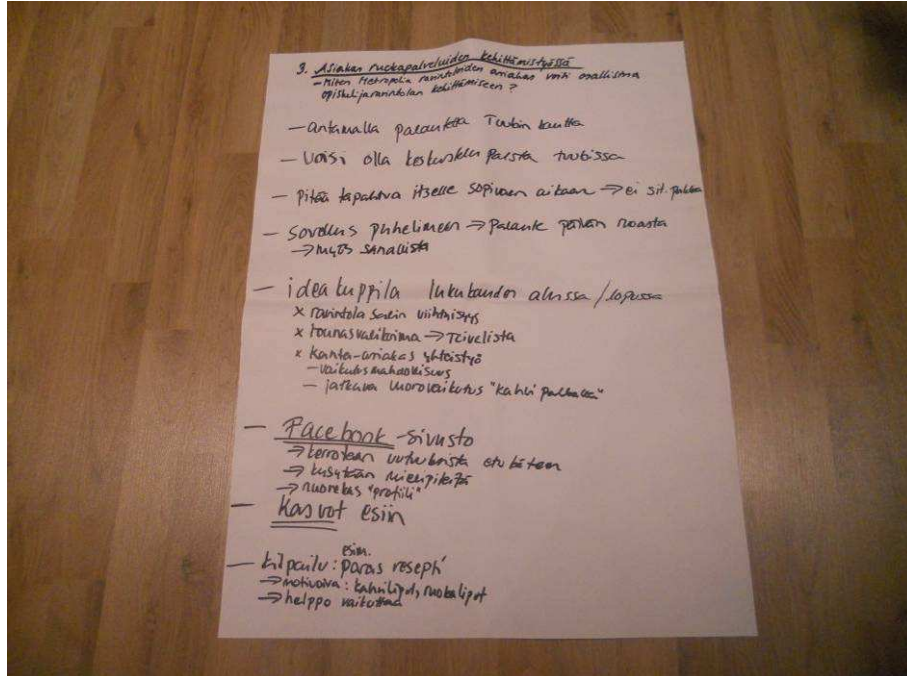 3. Asiakas ruokapalveluiden kehittämistyössä
- Miten Metropolia ravintoloiden asiakas voisi osallistua
opiskelijaravintolan kehittämiseen?
- antamalla palautetta Tuubin kautta
- Voisi olla keskustelu palsta tuubissa
- Pitää tapahtua itselle sopivaan aikaan → ei sit.
- Sovellus puhelimeen → Palaute päivän ruoasta
→ myös sanallista
- idea kuppila lukukauden alussa / lopussa
x ravintola salin viihtyisyys
x lounasvalikoima → Toivelista
x Kanta-asiakas yhteistyö
- vaikutusmahdollisuus
- jatkava vuorovaikutus "kahvi palkalla"
- Facebook -sivusto
→ kerrotaan etukäteen
→ kysytään mielipiteitä
→ nuorekas "profiili"
- Kasvot esiin
- kilpailu: esim. paras resepti
→ motivoiva: kahviliput, ruokaliput
→ helppo vaikuttaa